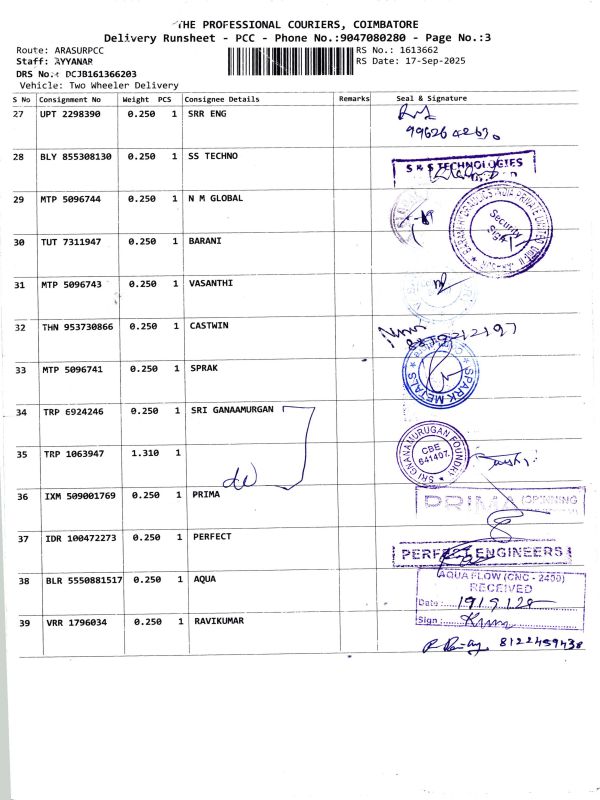 THE PROFESSIONAL COURIERS, COIMBATORE
Delivery Runsheet - PCC - Phone No.:9047080280 - Page No.:3
Route: ARASURPCC
RS No.: 1613662
Staff: AYYANAR
RS Date: 17-Sep-2025
DRS No.: DCJB161366203
Vehicle: Two Wheeler Delivery
S No Consignment No Weight PCS Consignee Details Remarks Seal & Signature
27 UPT 2298390 0.250 1 SRR ENG
28 BLY 855308130 0.250 1 SS TECHNO
S & S TECHNOLOGIES
29 MTP 5096744 0.250 1 N M GLOBAL
Security
30 TUT 7311947 0.250 1 BARANI
31 MTP 5096743 0.250 1 VASANTHI
32 THN 953730866 0.250 1 CASTWIN
33 MTP 5096741 0.250 1 SPRAK
SPARK METALS
34 TRP 6924246 0.250 1 SRI GANAAMURGAN
SRI GNANAMURUGAN FOUNDRY
CBE
641407.
35 TRP 1063947 1.310 1
36 IXM 509001769 0.250 1 PRIMA
PRIMA
37 IDR 100472273 0.250 1 PERFECT
PERFECT ENGINEERS
38 BLR 5550881517 0.250 1 AQUA
AQUA FLOW (CNC - 2400)
RECEIVED
Date:
Sign:
39 VRR 1796034 0.250 1 RAVIKUMAR
8122459438